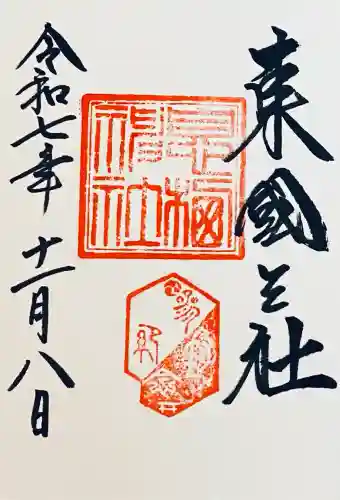 東國三社
令和七年十一月八日
息栖神社